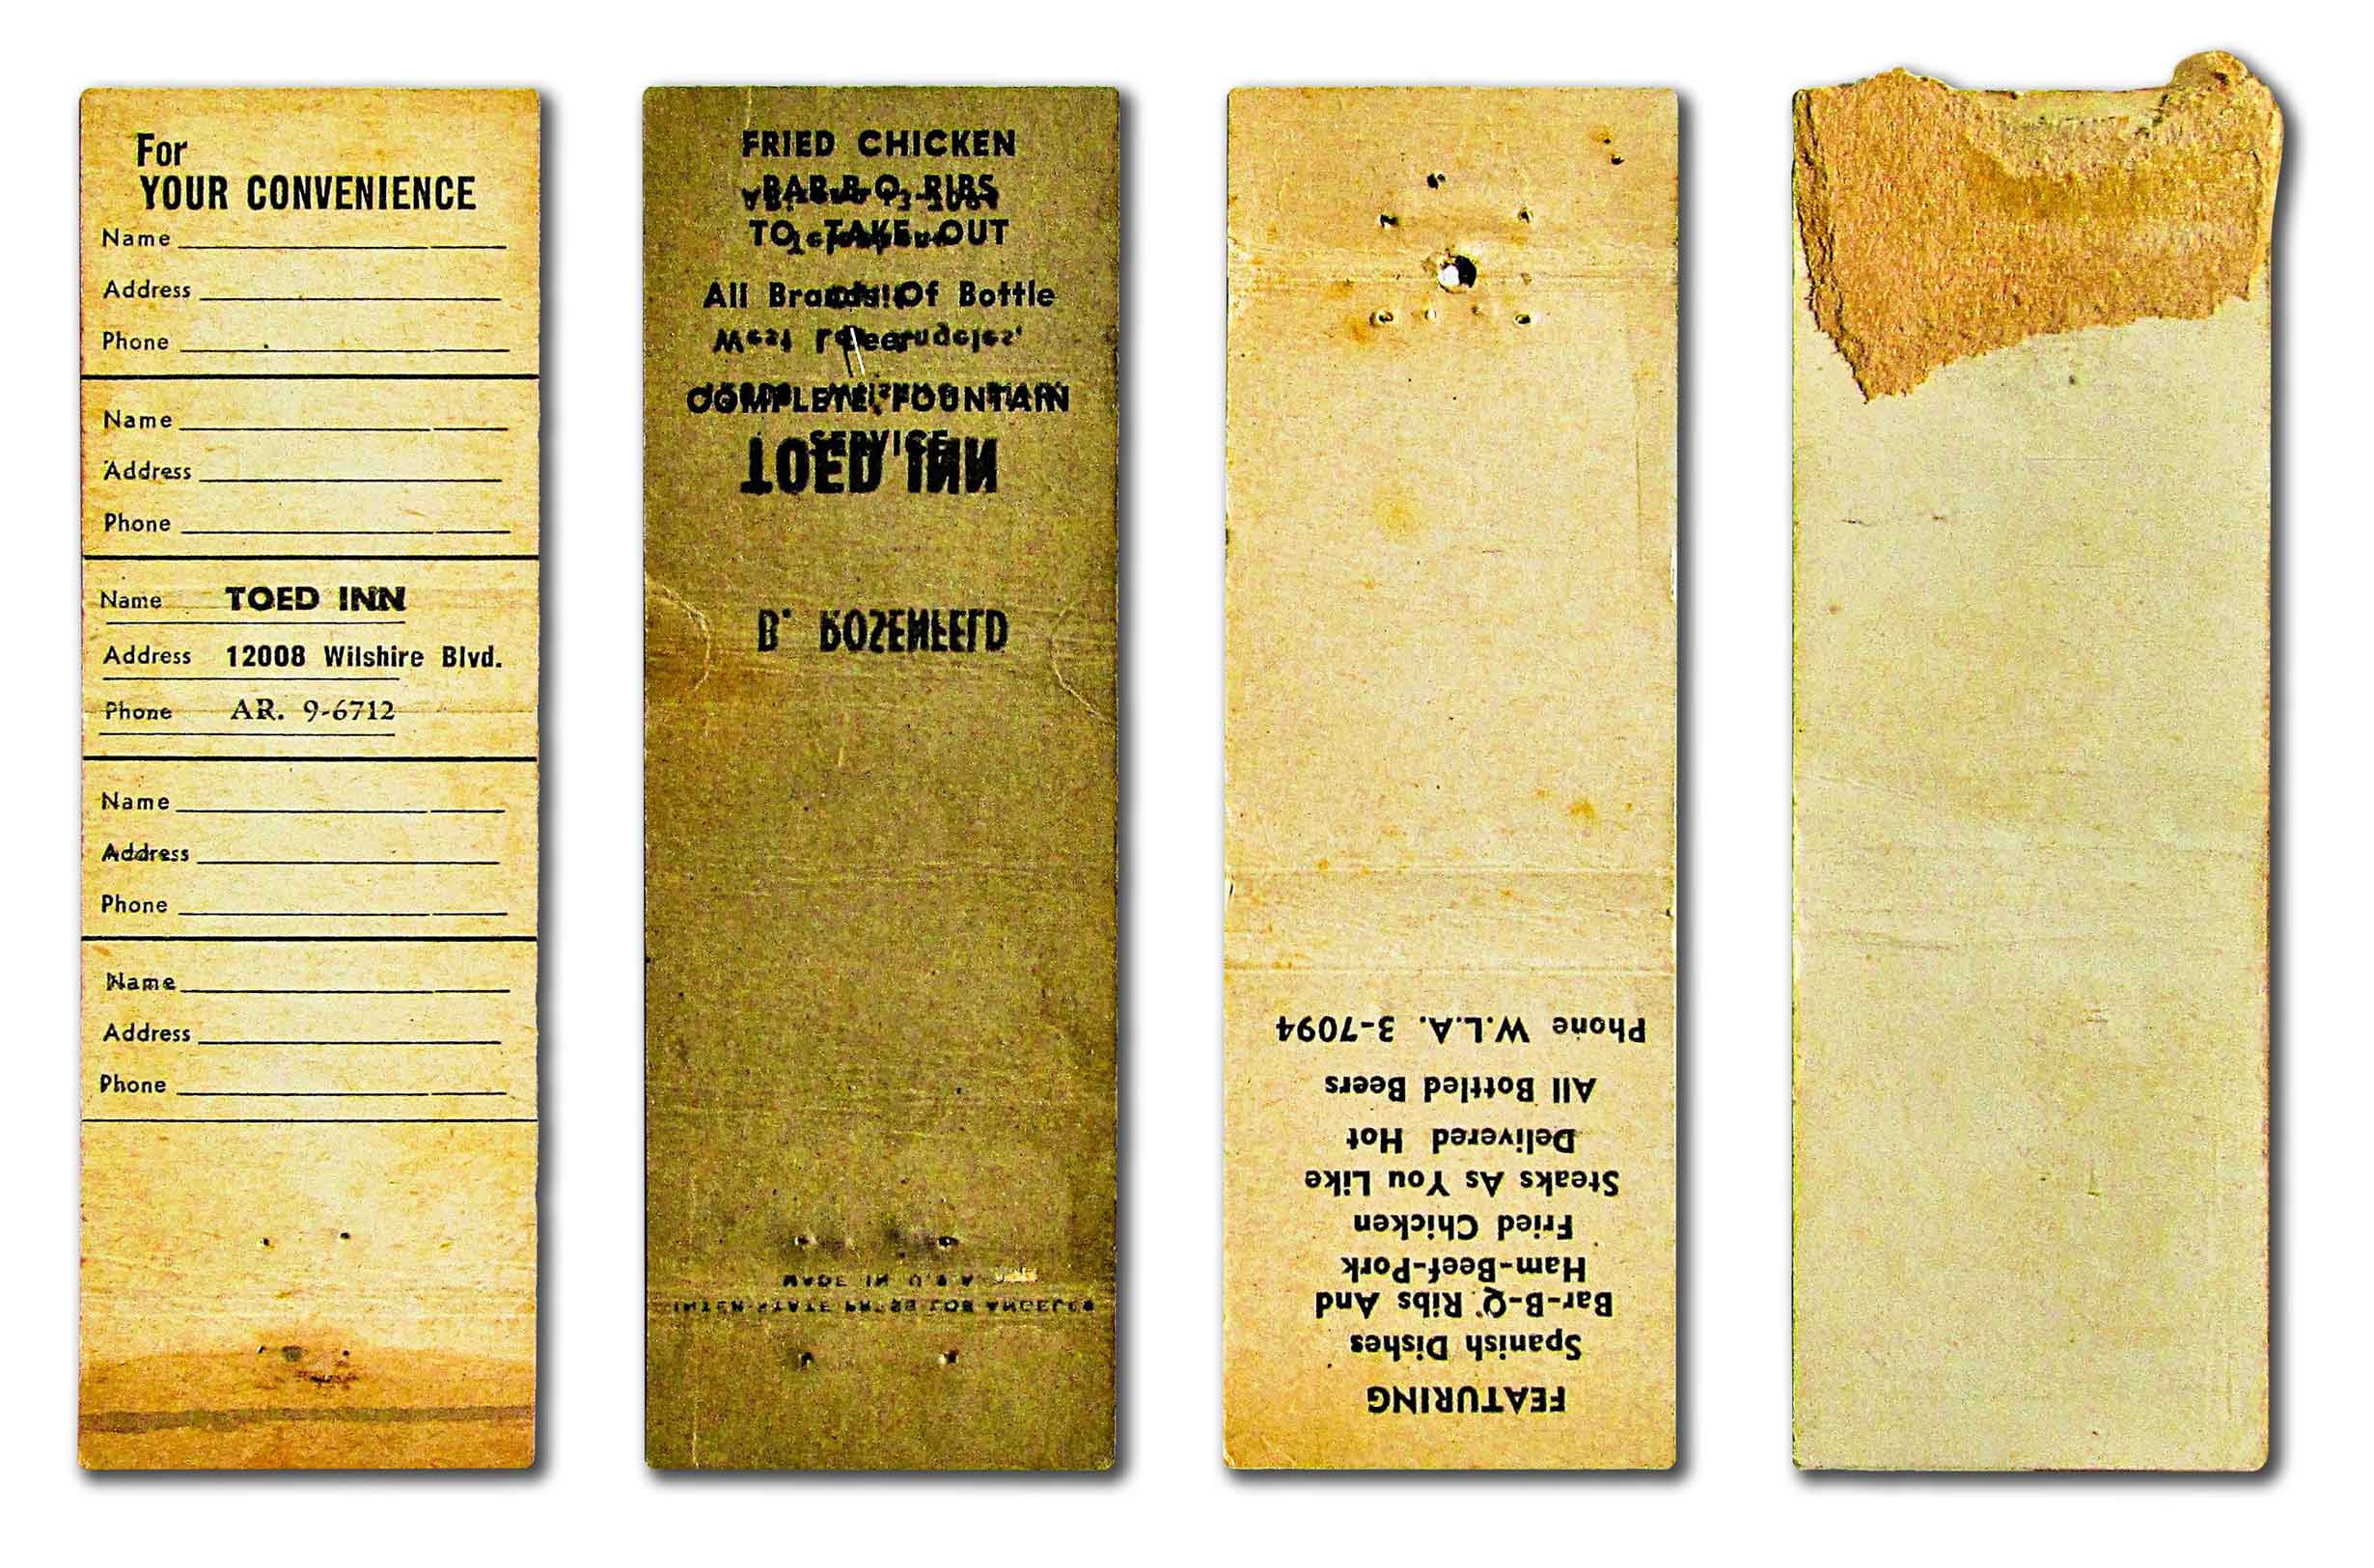 For
YOUR CONVENIENCE
Name
Address
Phone
Name
Address
Phone
Name TOED INN
Address 12008 Wilshire Blvd.
Phone AR. 9-6712
Name
Address
Phone
Name
Address
Phone
FRIED CHICKEN
BAR-B-Q RIBS
TO TAKE OUT
All Brands Of Bottle
Beer
COMPLETE FOUNTAIN
SERVICE
TOED INN
B. ROZENFELD
MADE IN U.S.A.
INTER-STATE PRESS LOS ANGELES
FEATURING
Spanish Dishes
Bar-B-Q Ribs And
Ham-Beef-Pork
Fried Chicken
Steaks As You Like
Delivered Hot
All Bottled Beers
Phone W.L.A. 3-7094